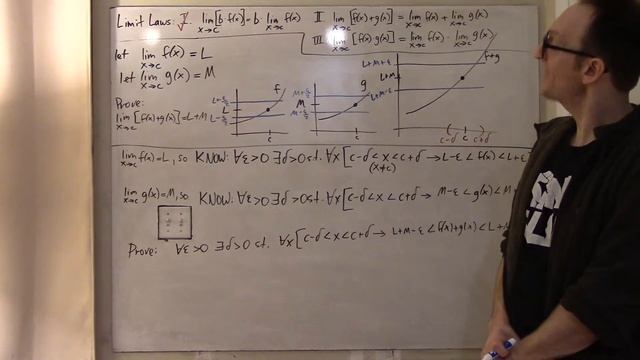 Limit Laws: I. lim x→c [b·f(x)] = b·lim x→c f(x)   II lim x→c [f(x)+g(x)] = lim x→c f(x) + lim x→c g(x)
III lim x→c [f(x)·g(x)] = lim x→c f(x) · lim x→c g(x)
let lim x→c f(x) = L
let lim x→c g(x) = M
Prove:
lim x→c [f(x)+g(x)] = L+M
L+ε/2
L
L-ε/2
f
c
M+ε/2
M
M-ε/2
g
c
L+M+ε
L+M
L+M-ε
f+g
c-δ c c+δ
lim x→c f(x)=L, so KNOW: ∀ε>0 ∃δ>0 s.t. ∀x [c-δ<x<c+δ → L-ε<f(x)<L+ε
(x≠c)
lim x→c g(x)=M, so KNOW: ∀ε>0 ∃δ>0 s.t. ∀x [c-δ<x<c+δ → M-ε<g(x)<M
Prove: ∀ε>0 ∃δ>0 s.t. ∀x [c-δ<x<c+δ → L+M-ε<f(x)+g(x)<L+